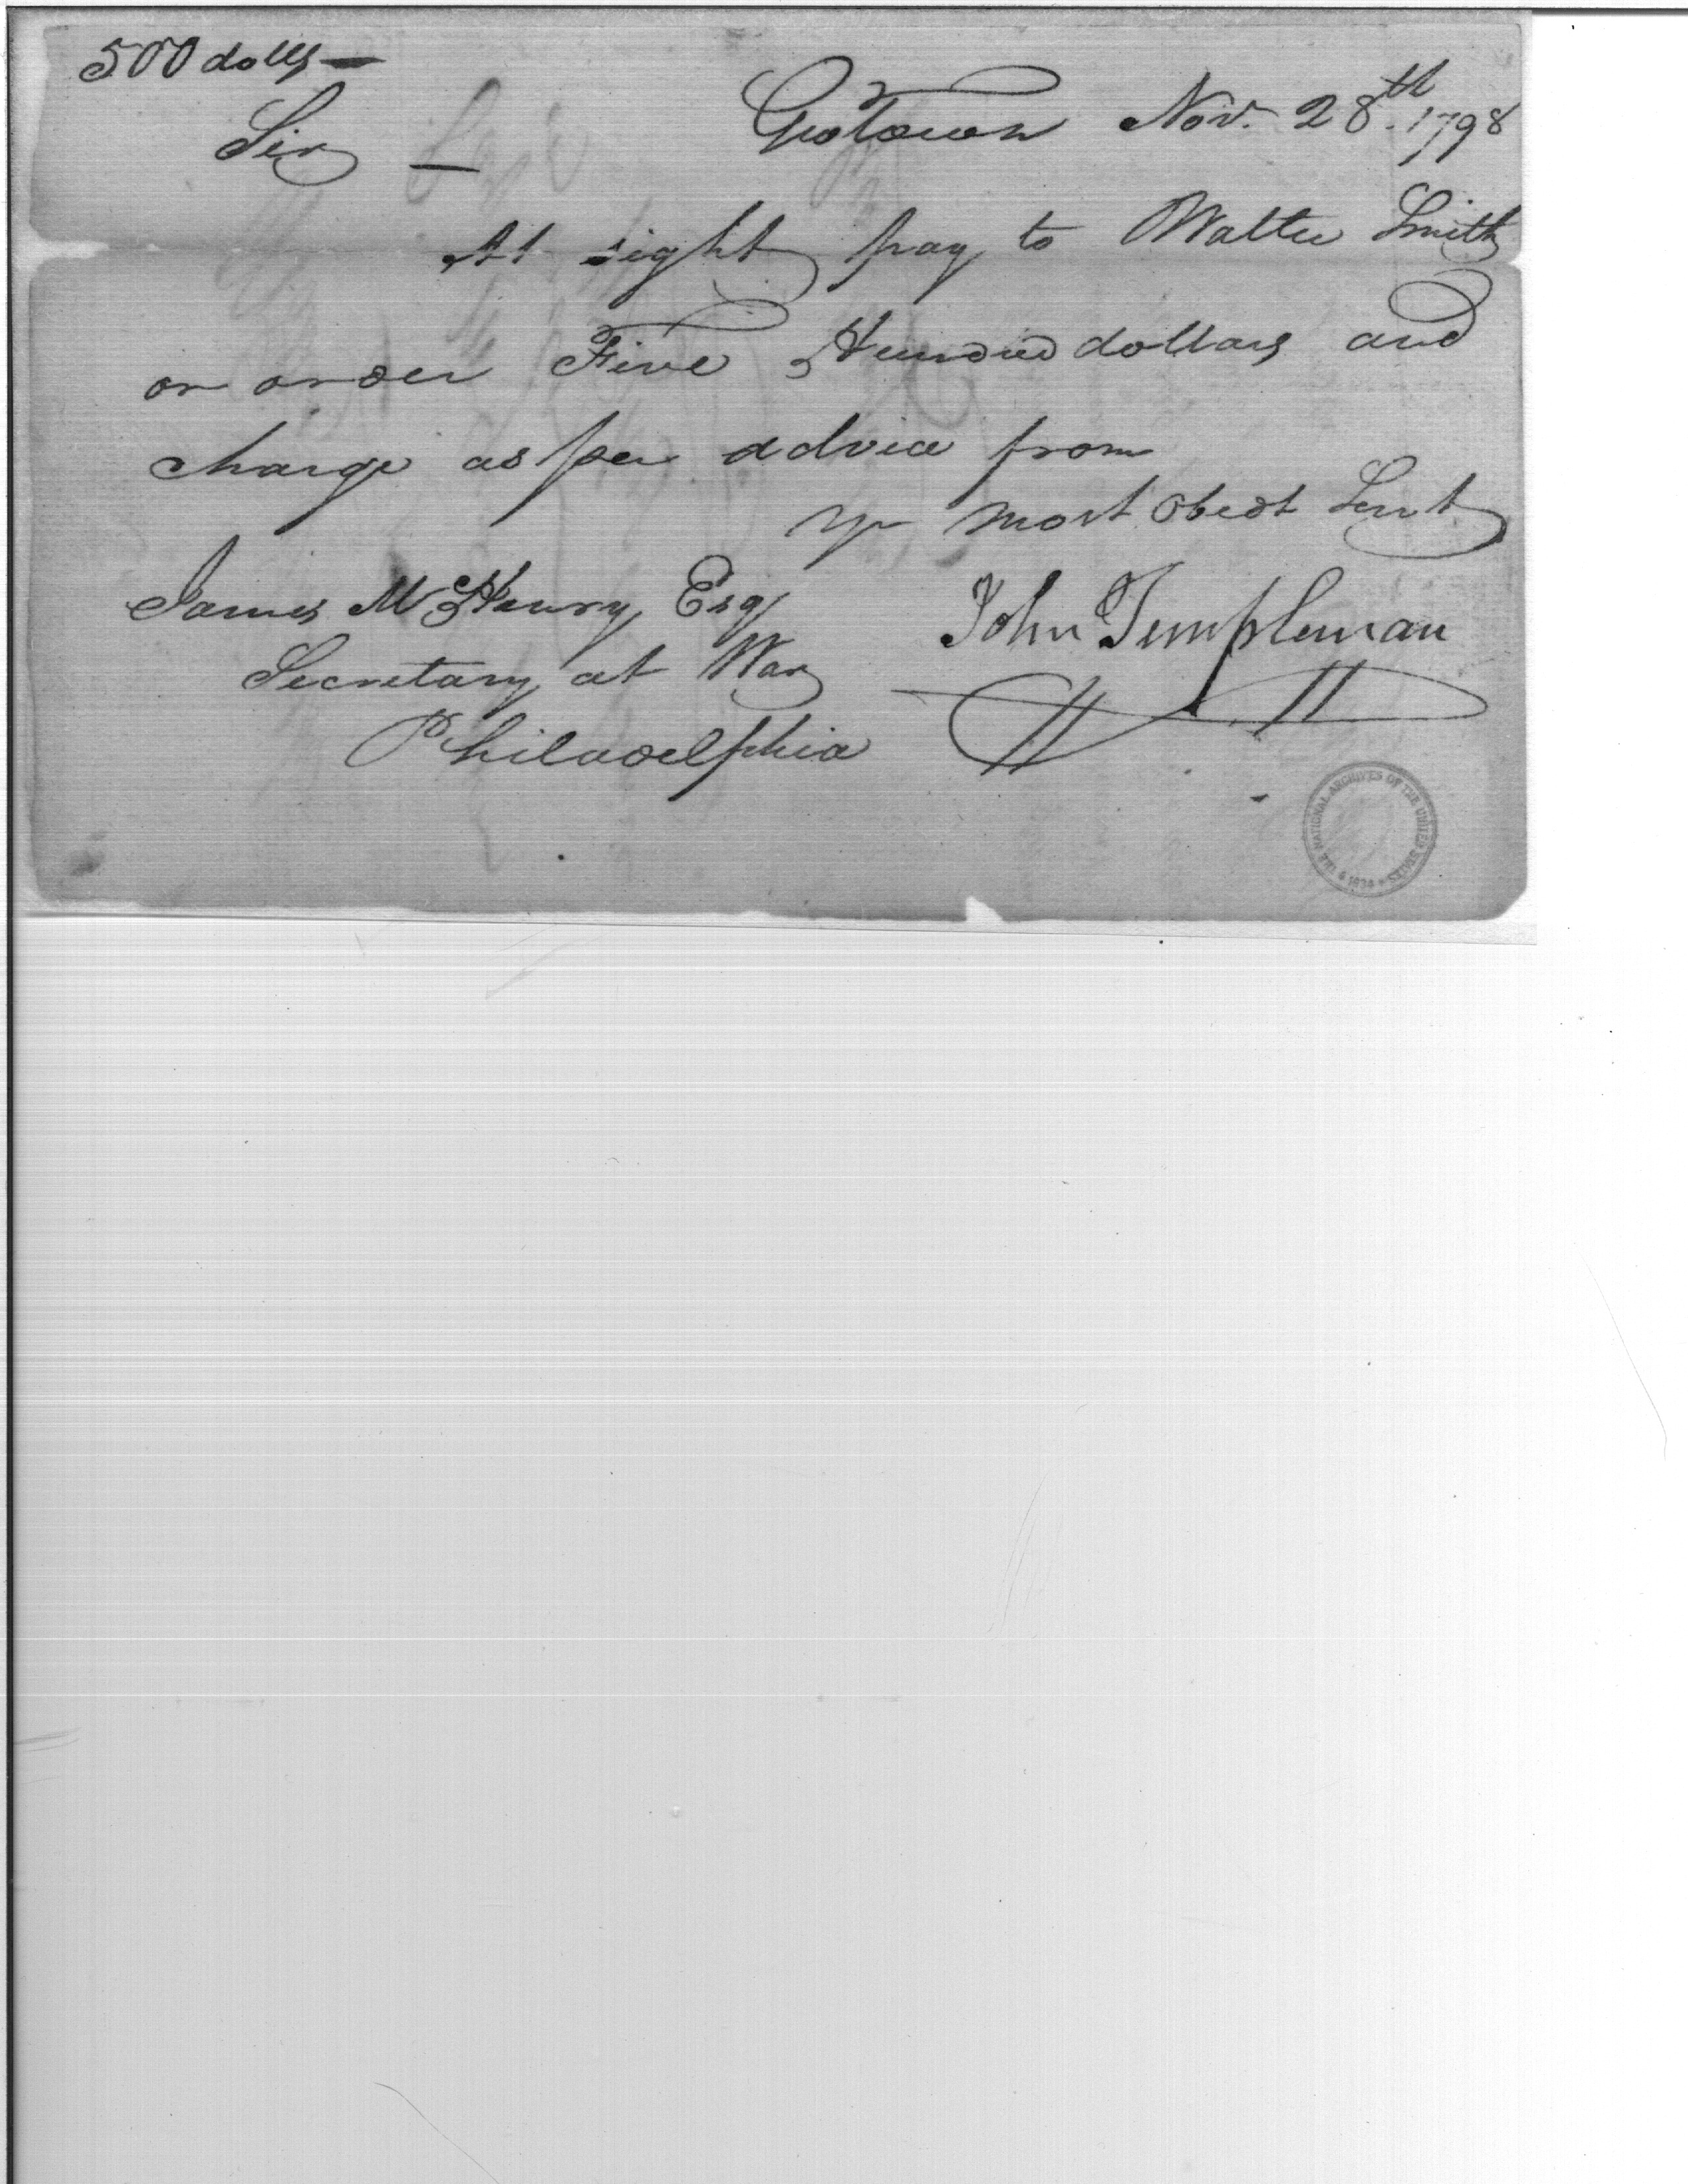 500 dolls —
GeoTown Nov. 28th. 1798
Sir —
At sight pay to Walter Smith
or order Five Hundred dollars and
charge as per advice from
yr most Obedt Servt
James McHenry Esq
John Templeman
Secretary at War
Philadelphia
THE NATIONAL ARCHIVES OF THE UNITED STATES
1934